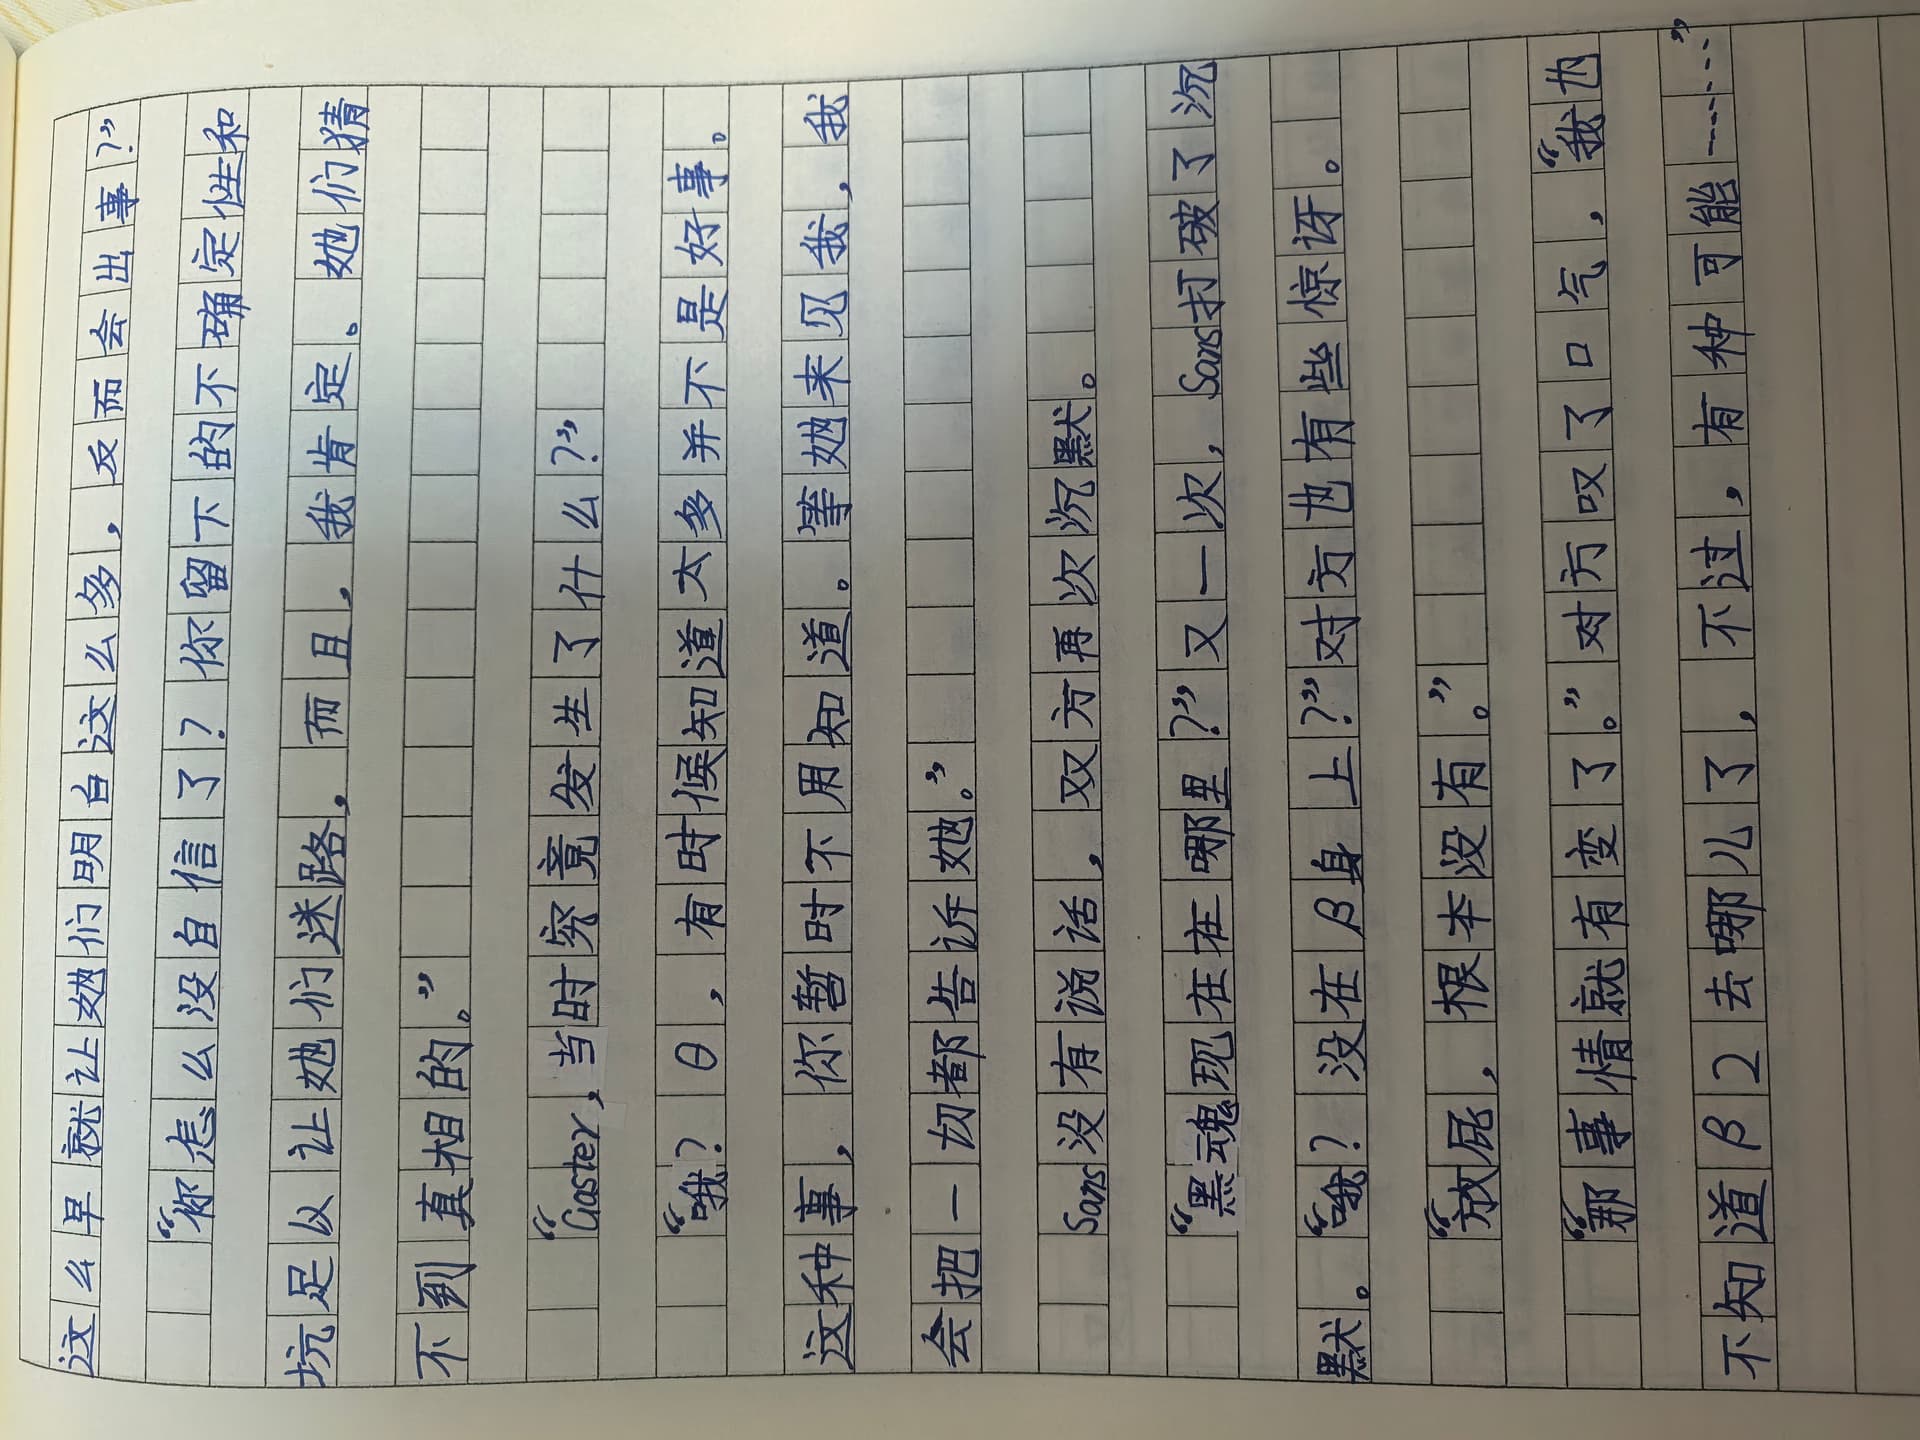 这么早就让她们明白这么多，反而会出事？”
“你怎么没自信了？你留下的不确定性和
坑足以让她们迷路，而且，我肯定。她们猜
不到真相的。”
“Gaster，当时究竟发生了什么？”
“哦？θ，有时候知道太多并不是好事。
这种事，你暂时不用知道。等她来见我，我
会把一切都告诉她。”
Sans没有说话，双方再次沉默。
“黑魂现在在哪里？”又一次，Sans打破了沉
默。“哦？没在β身上？”对方也有些惊讶。
“放屁，根本没有。”
“那事情就有变了。”对方叹了口气，“我也
不知道β2去哪儿了，不过，有种可能……”